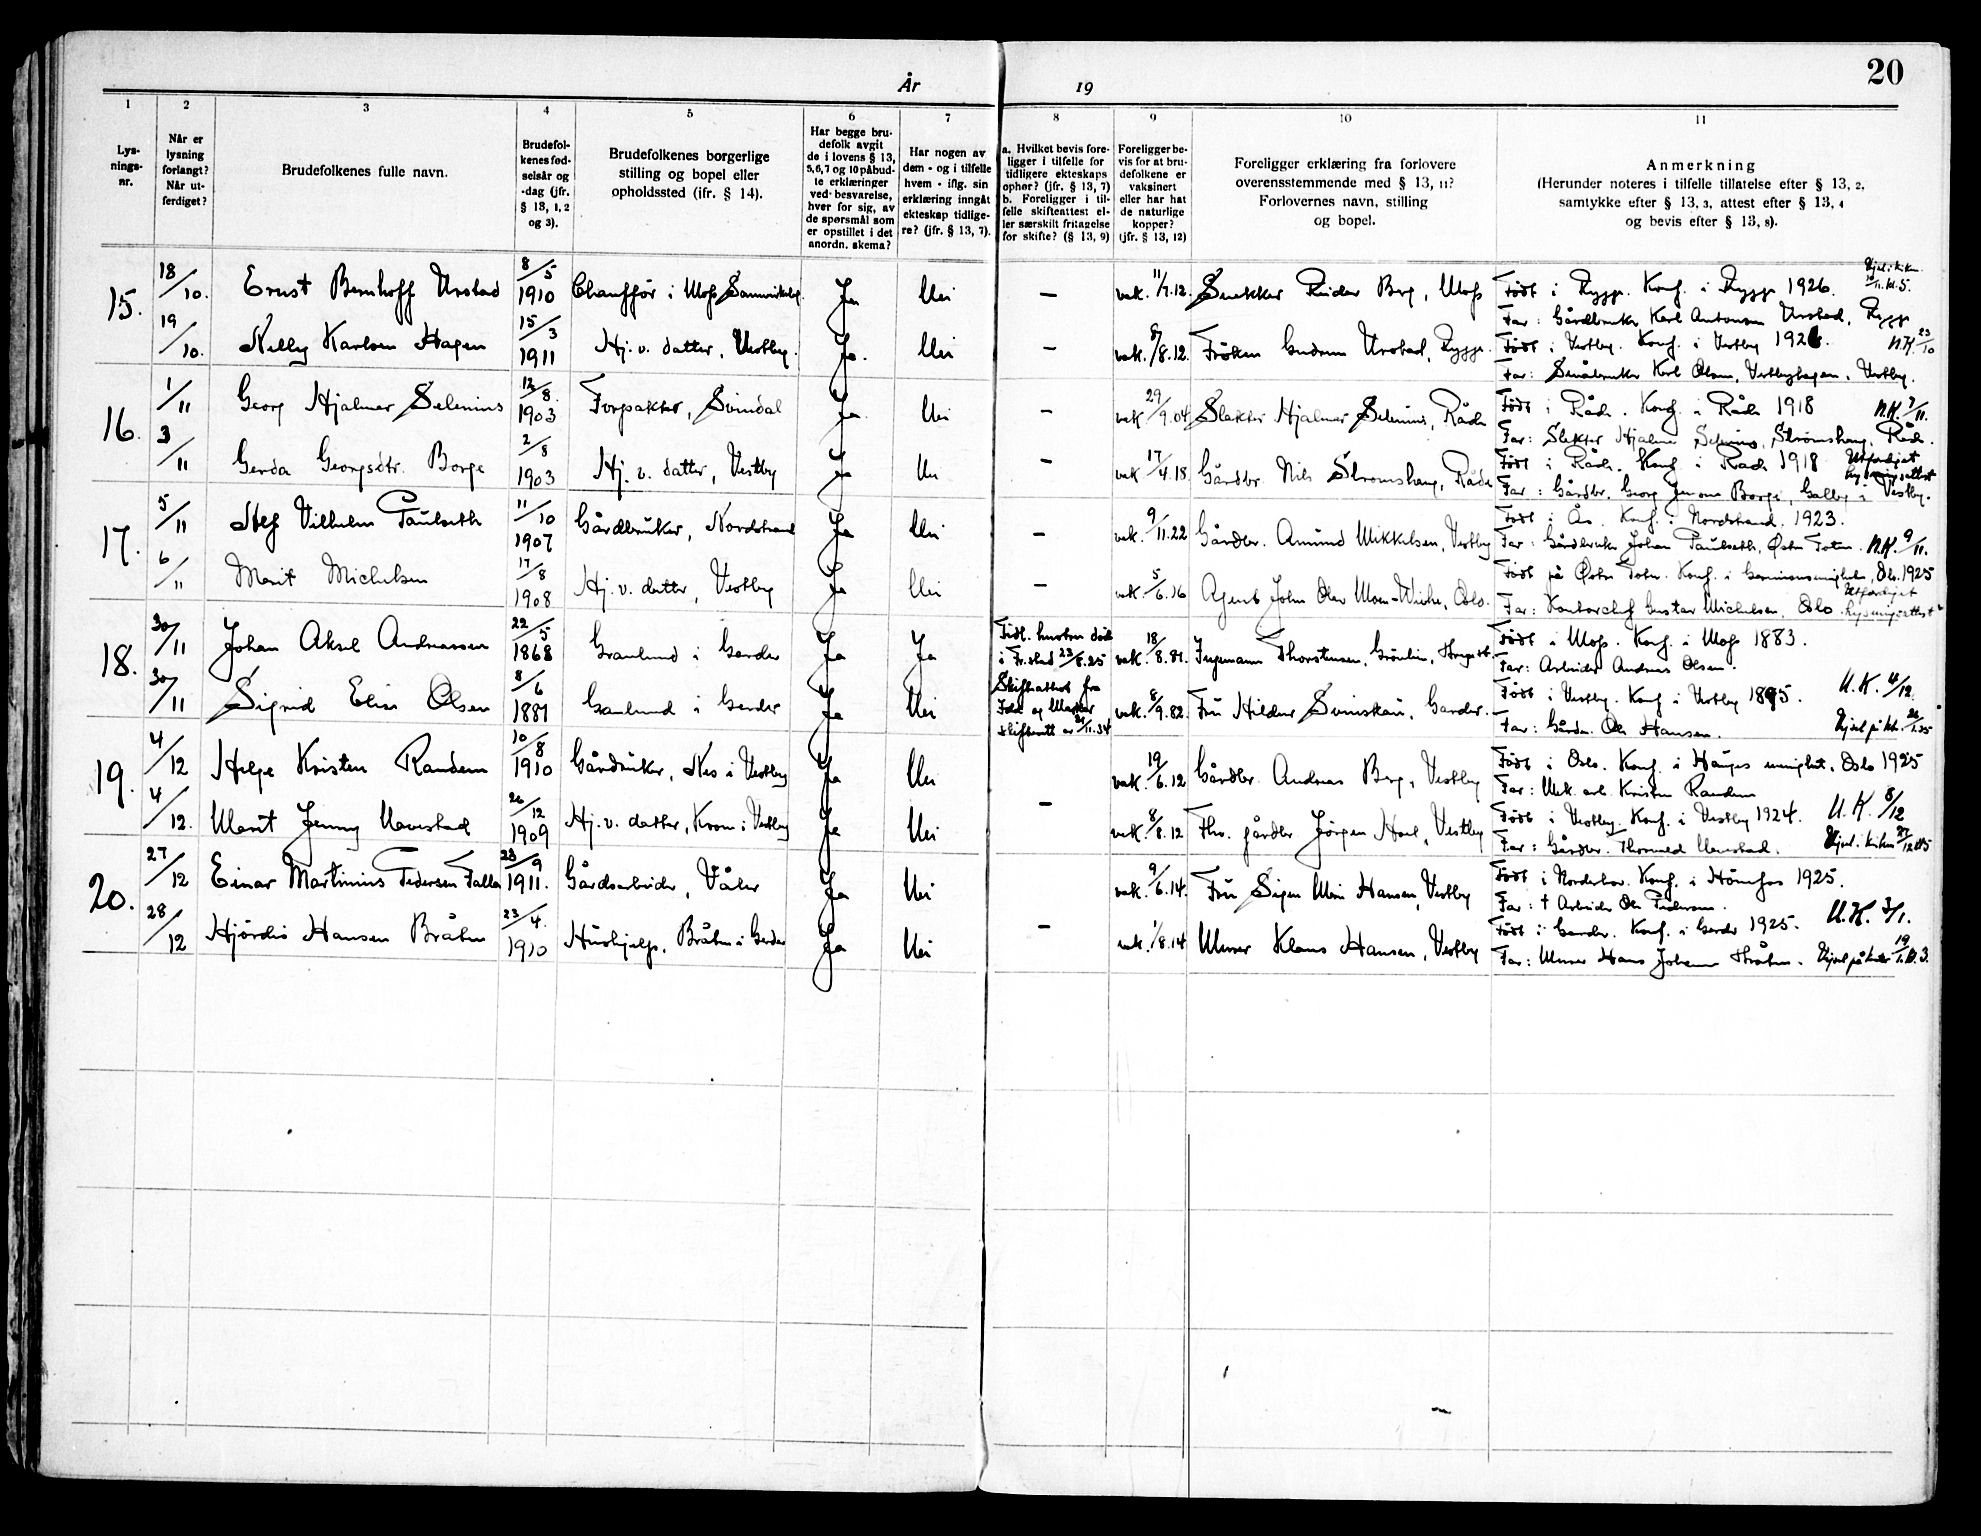 År 19
20
1 2 3 4 5 6 7 8 9 10 11
Lys-
nings-
nr.
Når er
lysning
forlangt?
Når ut-
ferdiget?
Brudefolkenes fulle navn.
Brudefol-
kenes fød-
selsår og
-dag (jfr.
§ 13, 1, 2
og 3).
Brudefolkenes borgerlige
stilling og bopel eller
opholdssted (jfr. § 14).
Har begge bru-
defolk avgit
de i lovens § 13,
5,6,7 og 10 påbud-
te erklæringer
ved besvarelse,
hver for sig, av
de spørsmål som
er opstillet i det
anordn. skema?
Har nogen av
dem - og i tilfelle
hvem - iflg. sin
erklæring inngåt
ekteskap tidlige-
re? (jfr. § 13, 7).
a. Hvilket bevis fore-
ligger i tilfelle for
tidligere ekteskaps
ophør? (jfr. § 13, 7)
b. Foreligger i til-
felle skifteattest el-
ler særskilt fritagelse
for skifte? (§ 13, 9)
Foreligger be-
vis for at bru-
defolkene er
vaksinert
eller har hat
de naturlige
kopper?
(jfr. § 13, 12)
Foreligger erklæring fra forlovere
overensstemmende med § 13, 11?
Forlovernes navn, stilling
og bopel.
Anmerkning
(Herunder noteres i tilfelle tillatelse efter § 13, 2,
samtykke efter § 13, 3, attest efter § 13, 4
og bevis efter § 13, 8).
15. 18/10. Ernst Bernhoff Unstad 8/5 1910 Chauffør i Moss Ja Nei — vak. 11/7.12. Snekker Reidar Berg, Moss Født i Rygge. Konf. i Rygge 1926.
Far: Gårdbruker Karl Antonsen Unstad, Rygge
19/10. Nelly Karlsen Hagen 15/3 1911 Hj.v. datter, Vestby. Ja. Nei — vak. /8.12. Frøken Gudrun Unstad, Rygge. Født i Vestby. Konf. i Vestby 1926. N.K. 23/10
Far: Småbruker Karl Olsen, Vestbyhagen, Vestby.
16. 1/11 Georg Hjalmar Selenius 12/8. 1903 Forpakter, Svindal Ja Nei — vak 29/9.04 Slakter Hjalmar Selenius, Råde Født i Råde. Konf. i Råde 1918 N.K. 7/11.
Far: Slakter Hjalmar Selenius, Strømshaug, Råde.
3/11 Gerda Georgsdtr. Borge 2/8 1903 Hj.v. datter, Vestby Ja Nei — vak 17/4.18 Gårdbr. Nils Strømshaug, Råde Født i Råde. Konf. i Råde 1918 Utferdiget lysningsattest
Far: Gårdbr. Georg Borge, Galby i Vestby.
17. 5/11 Alf Vilhelm Paulseth 11/10 1907 Gårdbruker, Nordstrand Ja Nei — vak. 9/11.22 Gårdbr. Amund Mikkelsen, Vestby Født i Ås. Konf. i Nordstrand. 1923.
Far: Gårdbruker Johan Paulseth, Østre Toten. N.K. 9/11.
6/11 Marit Michelsen 17/8 1908 Hj.v. datter, Vestby Ja Nei — vak. 5/6.16 Agent John Olav Moen-Wiche, Oslo. Født på Østre Toten. Konf. i Garnisonsmenigheten, Oslo. 1925
Far: Kontorchef Gustav Michelsen, Oslo. Utferdiget lysningsattest
18. 30/11 Johan Aksel Andreassen 22/5 1868 Granlund i Garder Ja Ja Tidl. hustru død i Fr.stad 23/8.25 vak. 18/8.81. Ingemann Thorstensen, Grønlin, Født i Moss. Konf. i Moss 1883.
Far: Arbeider Andreas Olsen.
30/11 Sigrid Elise Olsen 8/6 1881 Granlund i Garder Ja Nei Skifteattest fra Idd og Marker skifterett av 21/11.34 vak. 8/9.82. Fru Hildur Svinskau, Garder. Født i Vestby. Konf. i Vestby 1895. U.K. 4/12.
Far: Gårdm. Ole Hansen.
19. 4/12 Helge Kristen Randem 10/8 1910 Gårdbruker, Nes i Vestby Ja Nei vak. 19/6.12 Gårdbr. Andreas Berg, Vestby Født i Oslo. Konf. i Hauges menighet, Oslo 1925
Far: Mek. arb. Kristen Randem
4/12. Marit Jenny Navestad 26/12 1909 Hj.v. datter, Krom i Vestby Ja Nei — vak. 8/8.12 Fhv. gårdbr Jørgen Hoel, Vestby Født i Vestby. Konf. i Vestby 1924. U.K. 8/12
Far: Gårdbr. Thorvald Navestad.
20. 27/12 Einar Martinius Pedersen Falla 28/9 1911. Gårdsarbeider, Våler Ja Nei vak. 9/6.14. Fru Signe Marie Hansen, Vestby Født i Norderhov. Konf. i Hønefoss 1925.
Far: † Arbeider Ole Pedersen.
28/12 Hjørdis Hansen Bråten 23/4. 1910 Hushjelp, Bråten i Garder Ja Nei — vak. 1/8.14 Murer Klaus Hansen, Vestby Født i Garder. Konf. i Garder 1925. U.K. 3/1.
Far: Murer Hans Johan Bråten.